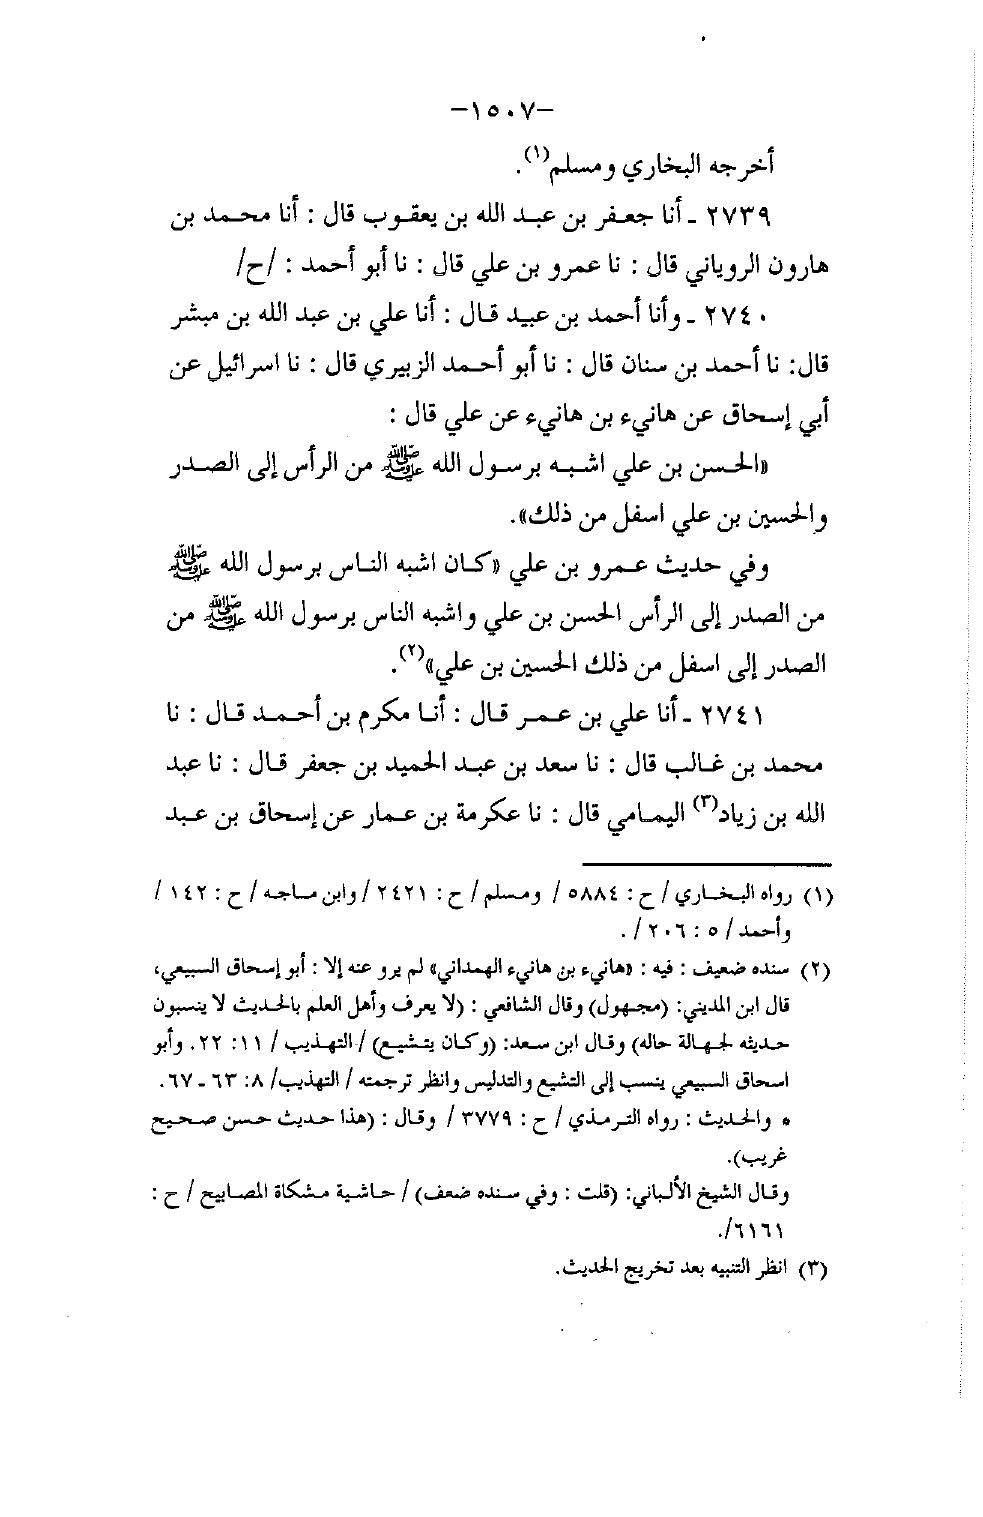 -١٥٠٧-
أخرجه البخاري ومسلم(١).
٢٧٣٩ ـ أنا جعفر بن عبد الله بن يعقوب قال : أنا محمد بن
هارون الروياني قال : نا عمرو بن علي قال : نا أبو أحمد : /ح/
٢٧٤٠ ـ وأنا أحمد بن عبيد قال : أنا علي بن عبد الله بن مبشر
قال: نا أحمد بن سنان قال : نا أبو أحمد الزبيري قال : نا اسرائيل عن
أبي إسحاق عن هانيء بن هانيء عن علي قال :
«الحسن بن علي اشبه برسول الله ﷺ من الرأس إلى الصدر
والحسين بن علي اسفل من ذلك».
وفي حديث عمرو بن علي «كان اشبه الناس برسول الله ﷺ
من الصدر إلى الرأس الحسن بن علي واشبه الناس برسول الله ﷺ من
الصدر إلى اسفل من ذلك الحسين بن علي»(٢).
٢٧٤١ ـ أنا علي بن عمر قال : أنا مكرم بن أحمد قال : نا
محمد بن غالب قال : نا سعد بن عبد الحميد بن جعفر قال : نا عبد
الله بن زياد(٣) اليمامي قال : نا عكرمة بن عمار عن إسحاق بن عبد
(١) رواه البخاري / ح : ٥٨٨٤ / ومسلم / ح : ٢٤٢١ / وابن ماجه / ح : ١٤٢ /
وأحمد / ٥ : ٢٠٦ / .
(٢) سنده ضعيف : فيه : «هانيء بن هانيء الهمداني» لم يرو عنه إلا : أبو إسحاق السبيعي،
قال ابن المديني: (مجهول) وقال الشافعي : (لا يعرف وأهل العلم بالحديث لا ينسبون
حديثه لجهالة حاله) وقال ابن سعد: (وكان يتشيع) / التهذيب / ١١: ٢٢. وأبو
اسحاق السبيعي ينسب إلى التشيع والتدليس وانظر ترجمته / التهذيب/ ٨: ٦٣ ـ ٦٧.
* والحديث : رواه الترمذي / ح : ٣٧٧٩ / وقال : (هذا حديث حسن صحيح
غريب).
وقال الشيخ الألباني: (قلت : وفي سنده ضعف) / حاشية مشكاة المصابيح / ح :
٦١٦١/.
(٣) انظر التنبيه بعد تخريج الحديث.